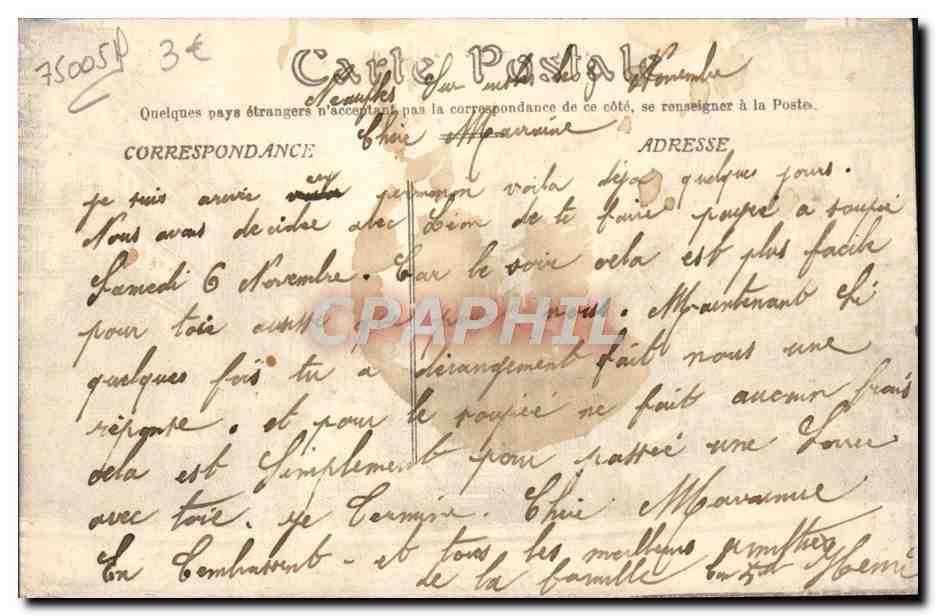 75005P 3€
Carte Postale
Neaufles Sur le Novembre
Quelques pays étrangers n'acceptent pas la correspondance de ce côté, se renseigner à la Poste.
Chère Marraine
CORRESPONDANCE ADRESSE
je suis arrivé en permision voila deja quelques jours.
Nous avons decidee avec Léon de te faire payée a soupée
Samedi 6 Novembre. Car le soir cela est plus facile
pour toie aussi que pour nous. Maintenant Si
quelques fois tu a dérangement fait nous une
réponse. et pour le soupée ne fait aucun frais
cela est Simplement pour passée une
avec toie. je Termine. Chère Marraine
En T'embrassent et tous les meilleurs amitiées
de la famille Henri
CPAPHIL